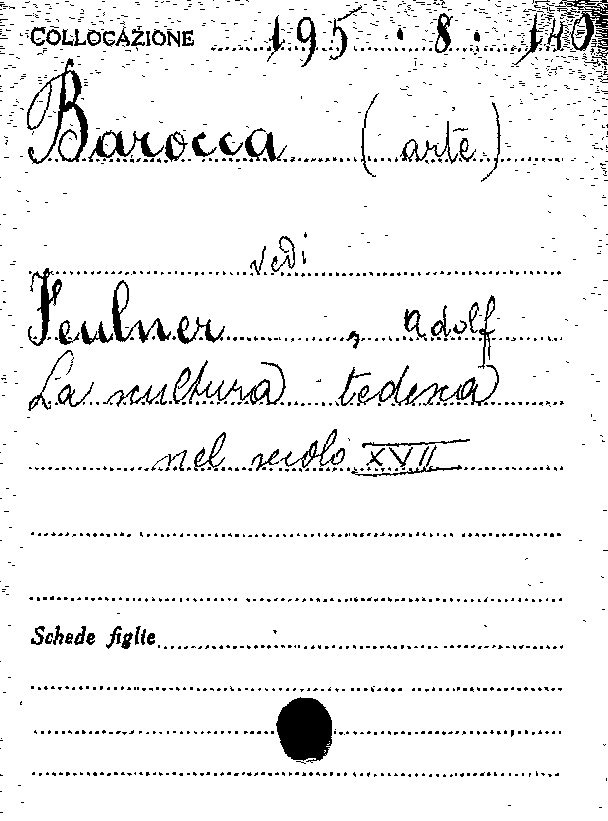 COLLOCAZIONE 195 . 8 . 140
Barocca (arte)
vedi
Feulner, Adolf
La scultura tedesca
nel secolo XVII
Schede figlie